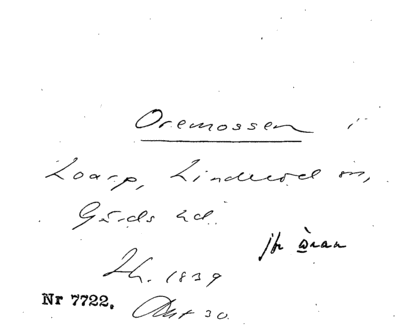 Oremossen i
Loarp, Linderöd sn,
Gärds hd.
jfr åran
Lh. 1839
Nr 7722. Akt 30.